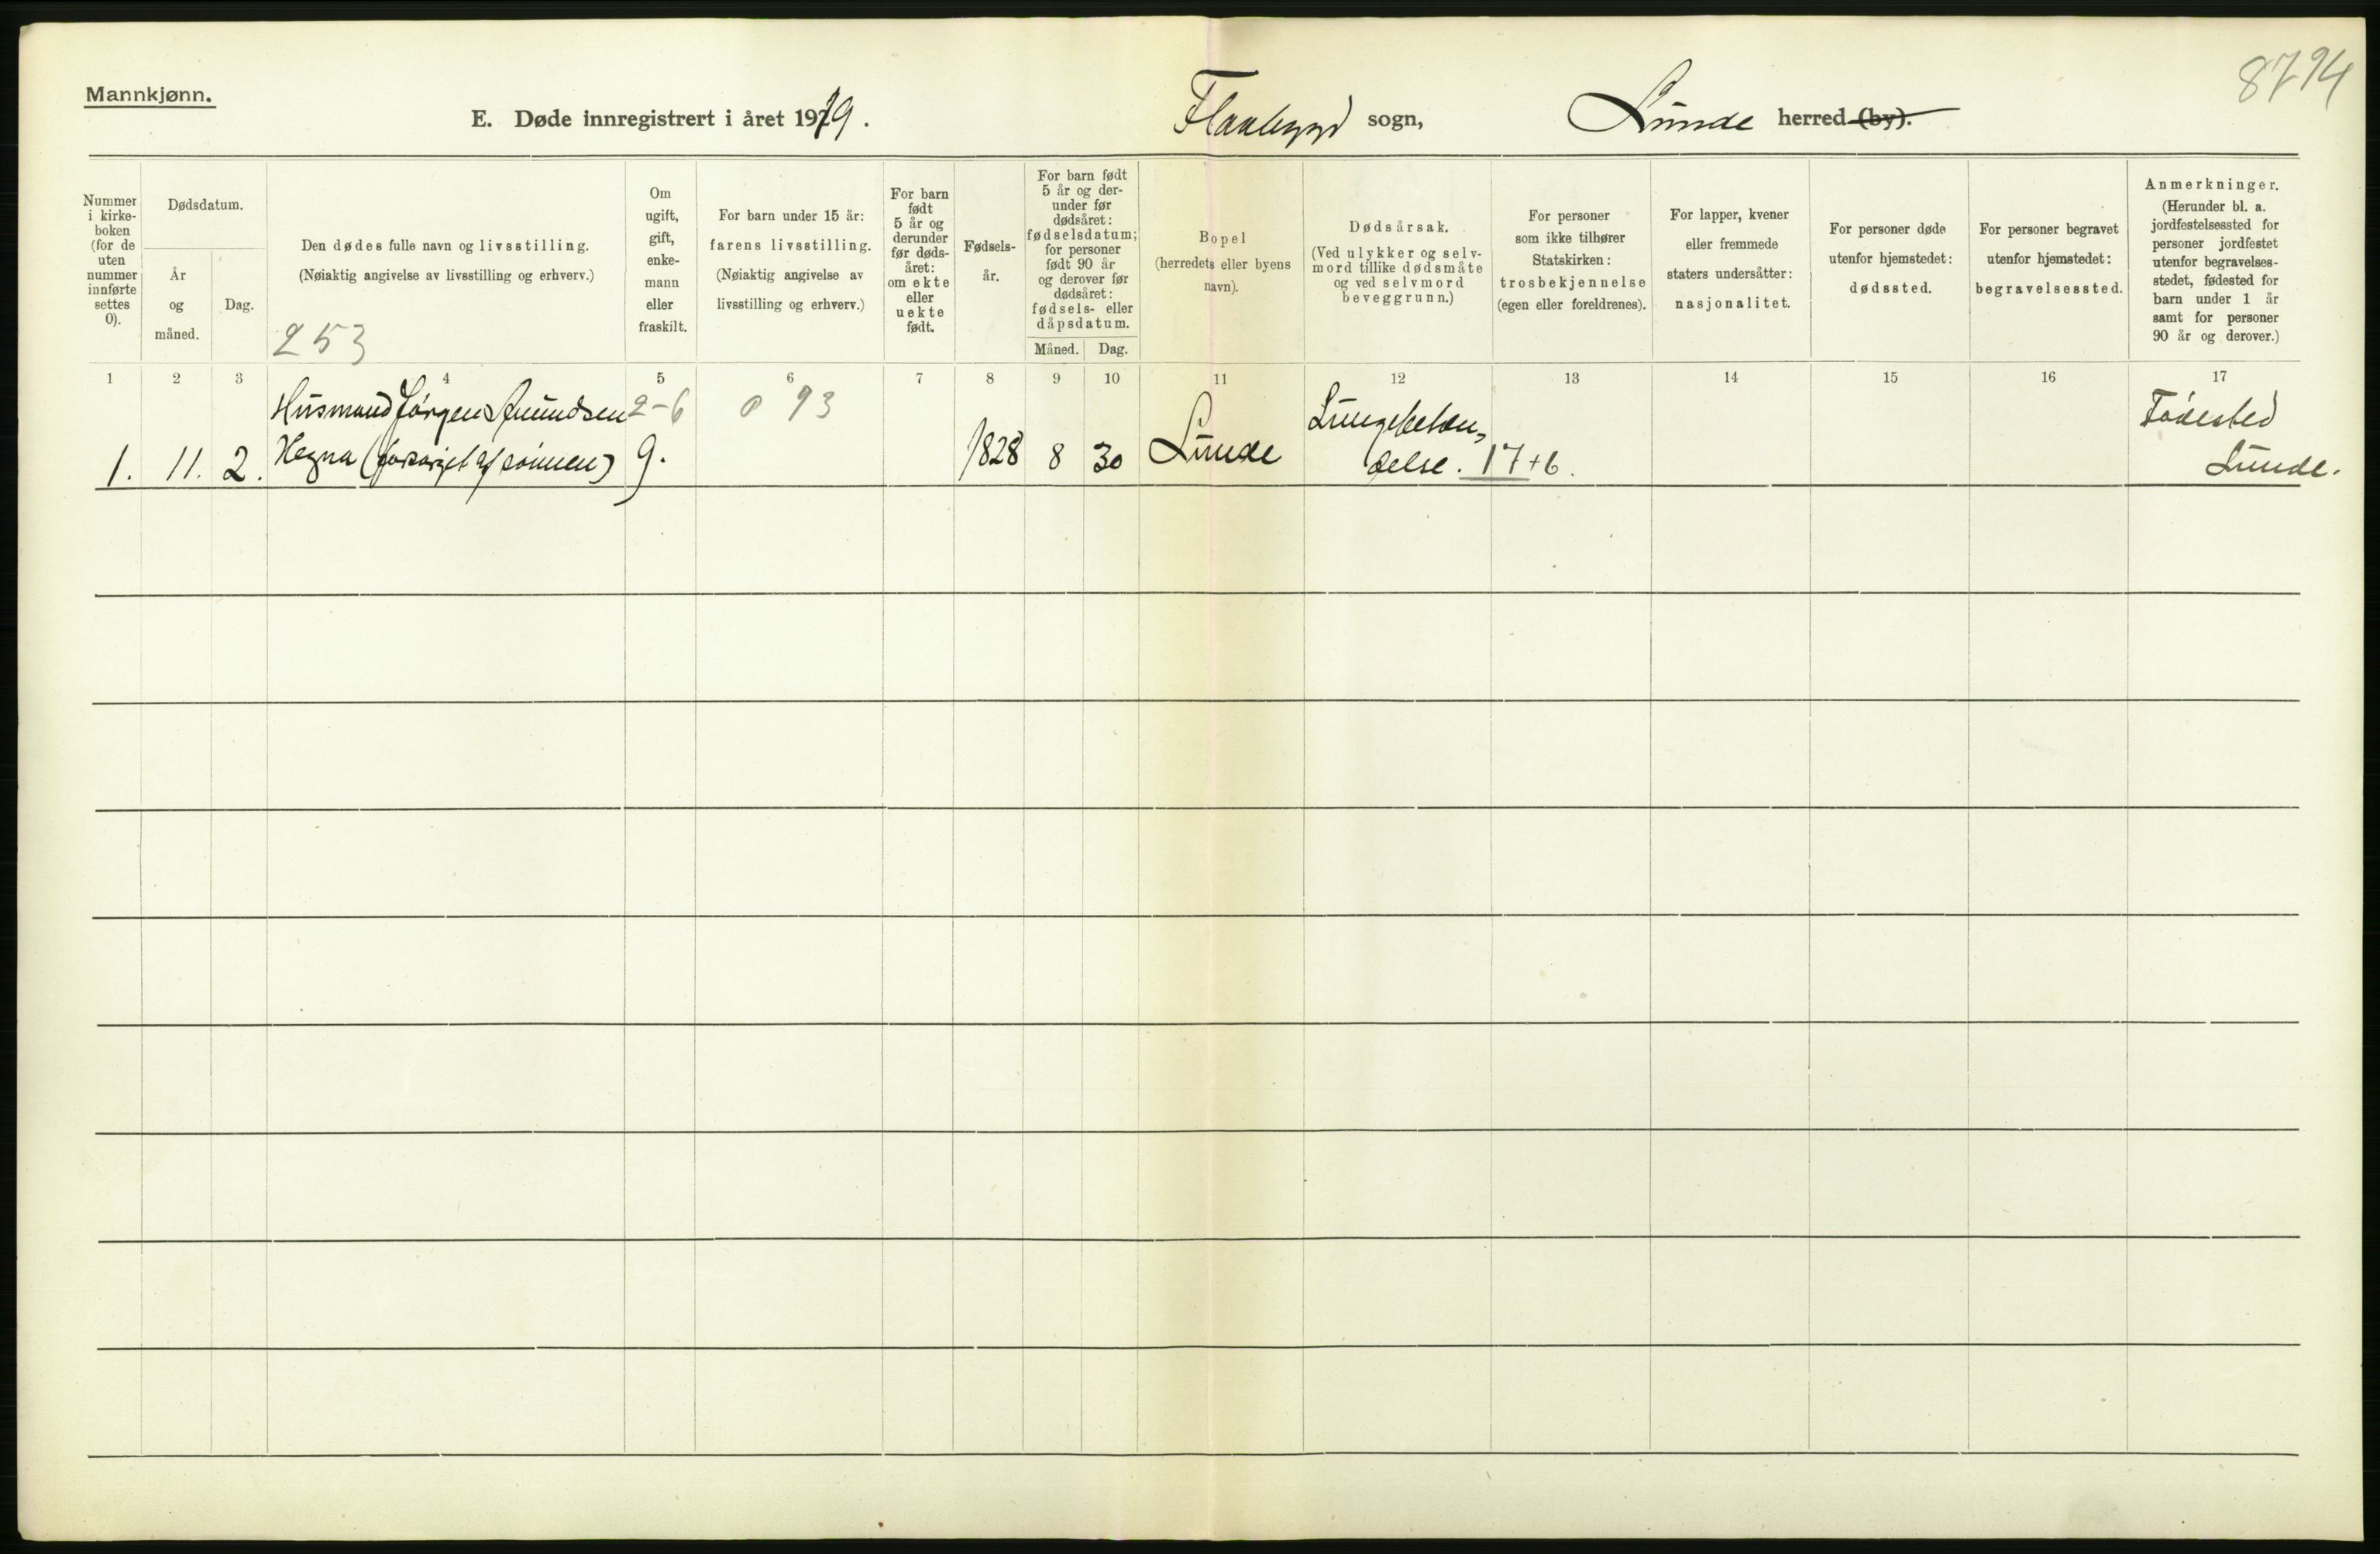 Mannkjønn.
8794
E. Døde innregistrert i året 1919.
Flaabygd sogn,
Lunde herred (by).
Nummer
i kirke-
boken
(for de
uten
nummer
innførte
settes
0).
Dødsdatum.
År
og
måned.
Dag.
Den dødes fulle navn og livsstilling.
(Nøiaktig angivelse av livsstilling og erhverv.)
253
Om
ugift,
gift,
enke-
mann
eller
fraskilt.
For barn under 15 år:
farens livsstilling.
(Nøiaktig angivelse av
livsstilling og erhverv.)
For barn
født
5 år og
derunder
før døds-
året:
om ekte
eller
uekte
født.
Fødsels-
år.
For barn født
5 år og der-
under før
dødsåret:
fødselsdatum;
for personer
født 90 år
og derover før
dødsåret:
fødsels- eller
dåpsdatum.
Måned.
Dag.
Bopel
(herredets eller byens
navn).
Dødsårsak.
(Ved ulykker og selv-
mord tillike dødsmåte
og ved selvmord
beveggrunn.)
For personer
som ikke tilhører
Statskirken:
trosbekjennelse
(egen eller foreldrenes).
For lapper, kvener
eller fremmede
staters undersåtter:
nasjonalitet.
For personer døde
utenfor hjemstedet:
dødssted.
For personer begravet
utenfor hjemstedet:
begravelsessted.
Anmerkninger.
(Herunder bl. a.
jordfestelsessted for
personer jordfestet
utenfor begravelses-
stedet, fødested for
barn under 1 år
samt for personer
90 år og derover.)
1 2 3 4 5 6 7 8 9 10 11 12 13 14 15 16 17
Husmand Jörgen Amundsen 2-6 0 93 Lungebetæn- Födested
1. 11. 2. Hegna (forsörget af sönnen) g. 1828 8 30 Lunde delse. 17+6. Lunde.